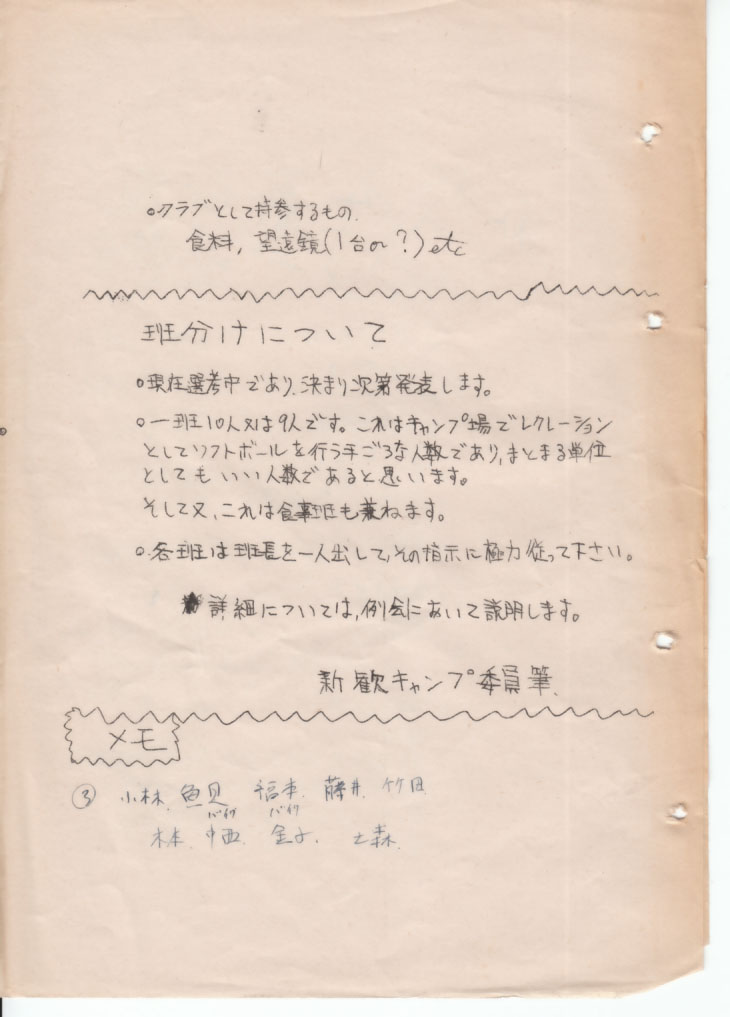 ○クラブとして持参するもの.
食料, 望遠鏡(1台or?)etc
班分けについて
○現在選考中であり、決まり次第発表します。
○一班10人又は9人です。これはキャンプ場でレクレーション
としてソフトボールを行う手ごろな人数であり、まとまる単位
としてもいい人数であると思います。
そして又、これは食事班も兼ねます。
○各班は班長を一人出して、その指示に極力従って下さい。
★詳細については、例会において説明します。
新歓キャンプ委員筆.
メモ
③ 小林. 魚見 福本. 藤井. 竹田.
バイク バイク
中西. 金子. 森.